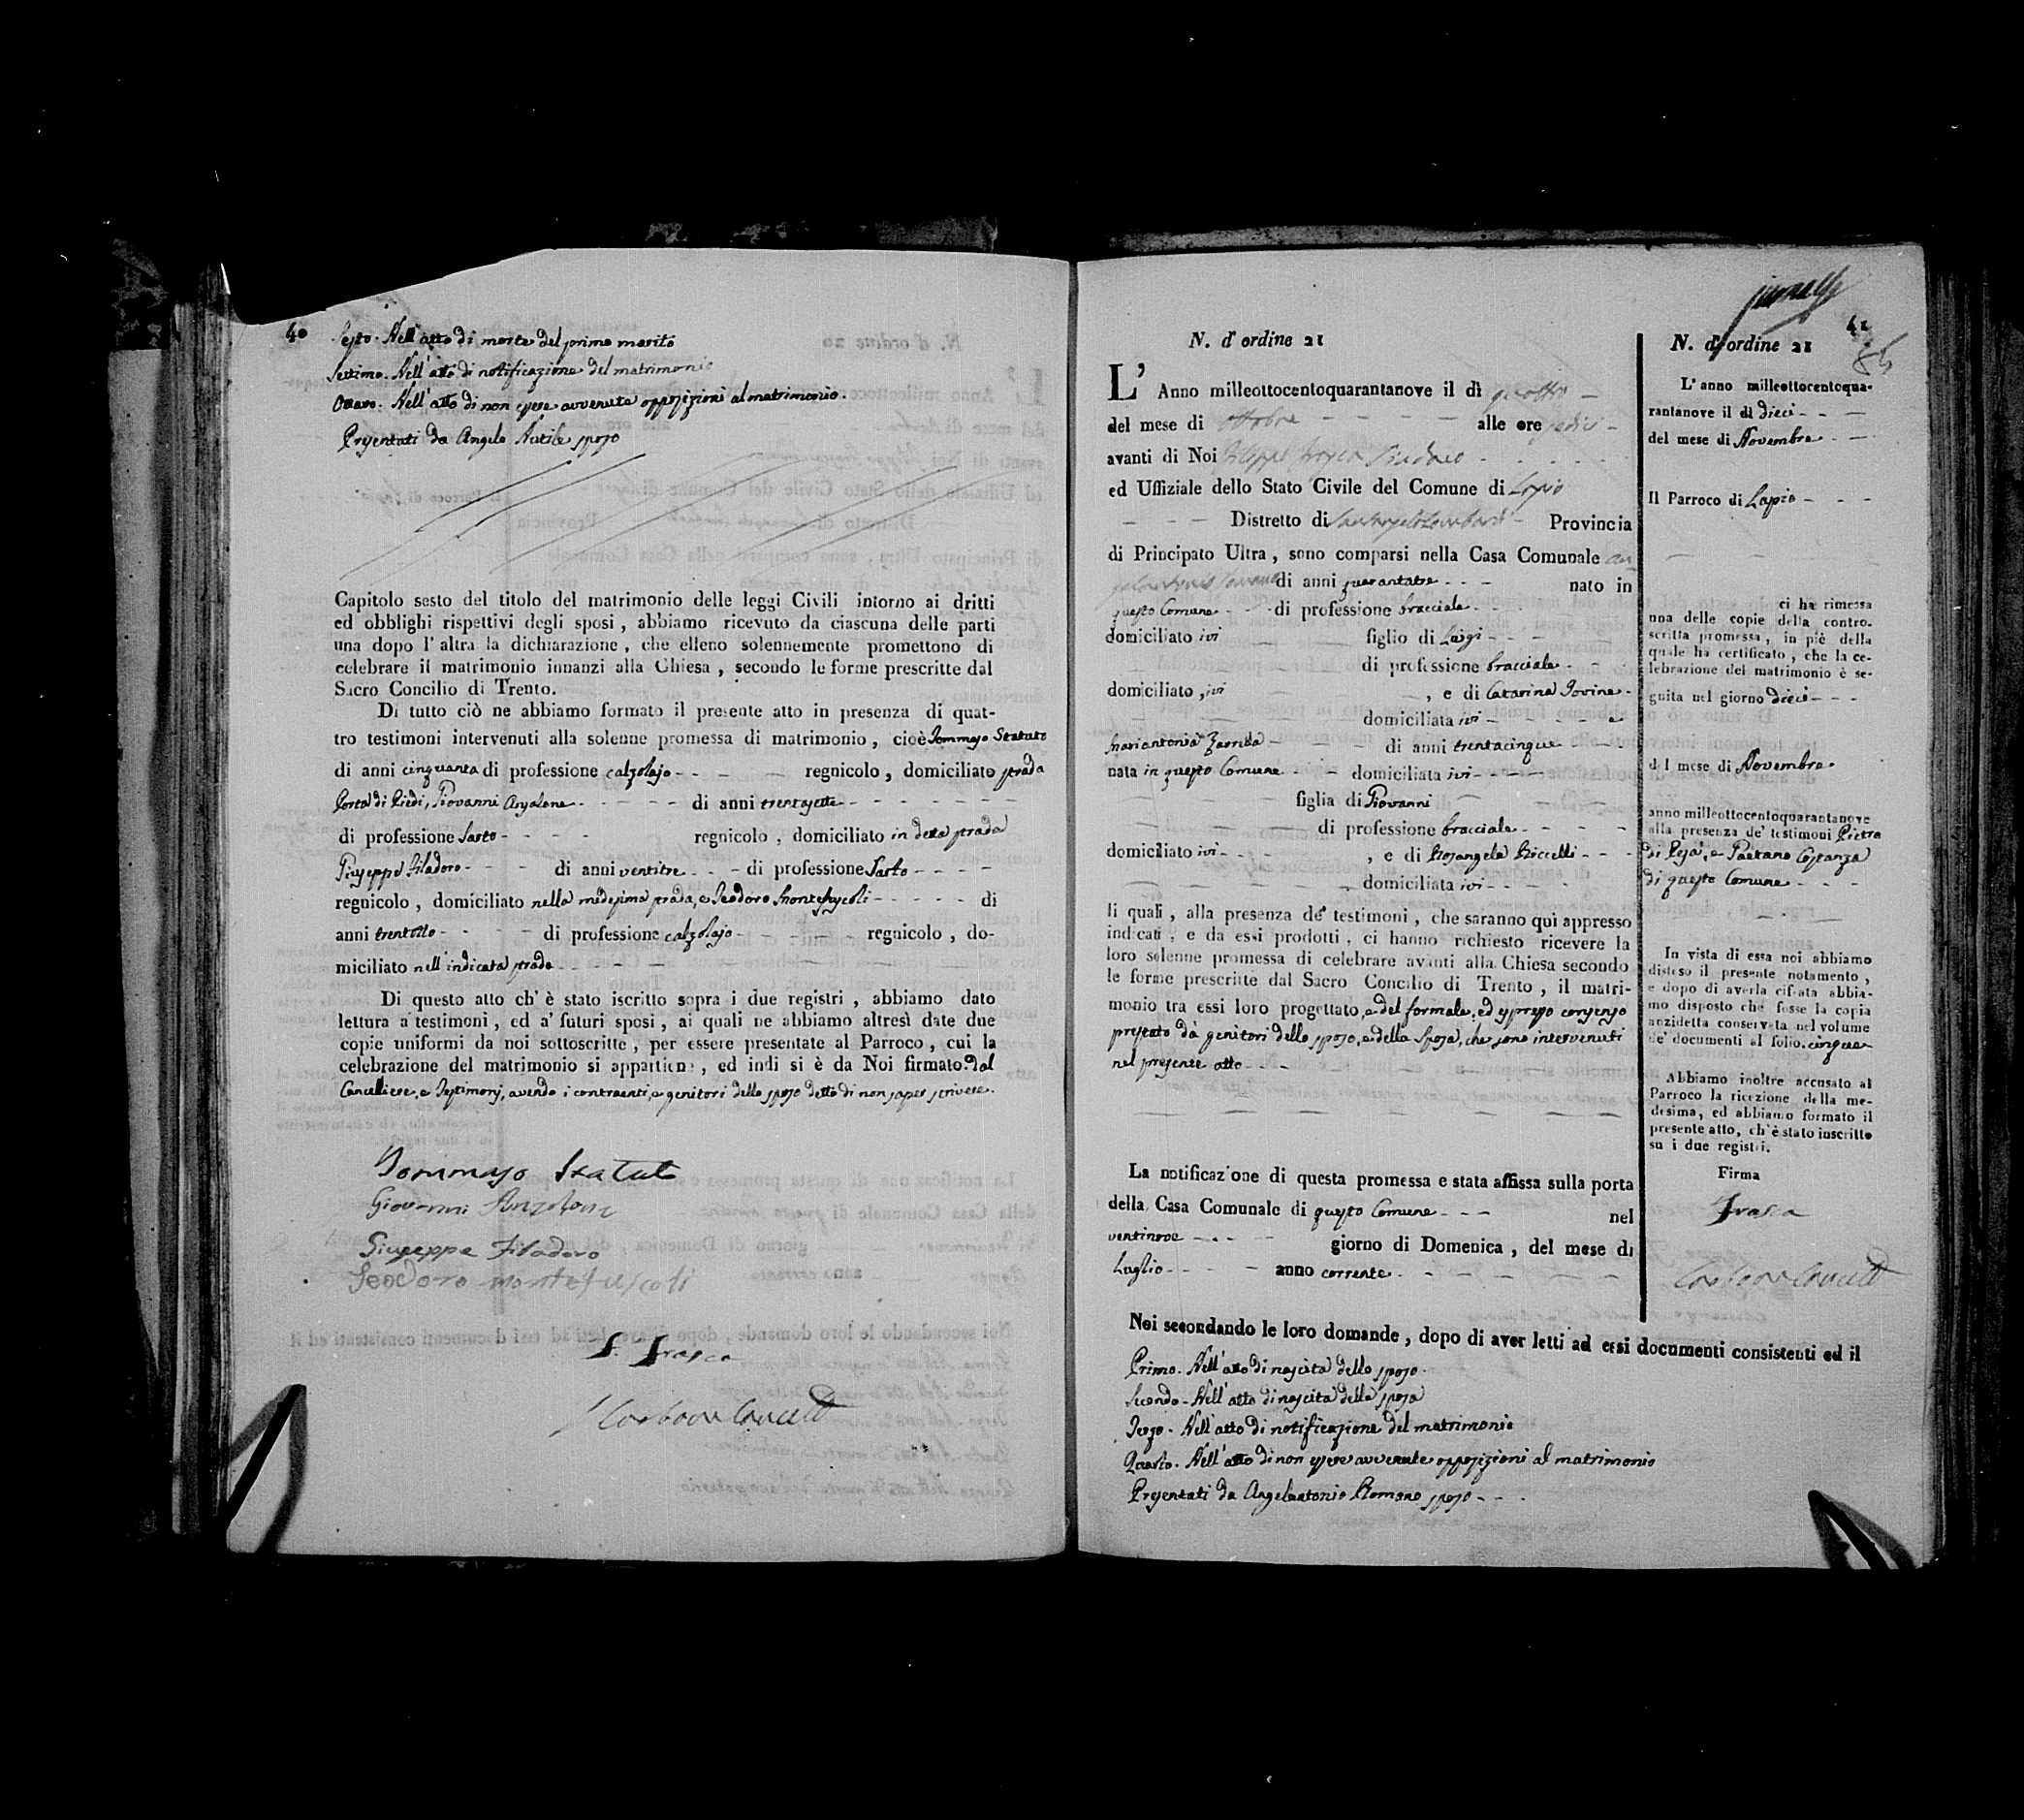 40
Sesto. Nell'atto di morte del primo marito
Settimo. Nell'atto di notificazione del matrimonio
Ottavo. Nell'atto di non essere avvenute opposizioni al matrimonio.
Presentati da Angelo Nutile sposo
Capitolo sesto del titolo del matrimonio delle leggi Civili intorno ai dritti
ed obblighi rispettivi degli sposi, abbiamo ricevuto da ciascuna delle parti
una dopo l'altra la dichiarazione, che elleno solennemente promettono di
celebrare il matrimonio innanzi alla Chiesa, secondo le forme prescritte dal
Sacro Concilio di Trento.
Di tutto ciò ne abbiamo formato il presente atto in presenza di quat-
tro testimoni intervenuti alla solenne promessa di matrimonio, cioè Tommaso Statuto
di anni cinquanta di professione calzolajo regnicolo, domiciliato strada
Porta di Piedi, Giovanni Anzalone di anni trentasette
di professione Sarto regnicolo, domiciliato in detta strada
Giuseppe Filadoro di anni ventitre di professione Sarto
regnicolo, domiciliato nella medesima strada, e Teodoro Montefuscoli di
anni trentotto di professione calzolajo regnicolo, do-
miciliato nell'indicata strada
Di questo atto ch'è stato iscritto sopra i due registri, abbiamo dato
lettura a' testimoni, ed a' futuri sposi, ai quali ne abbiamo altresì date due
copie uniformi da noi sottoscritte, per essere presentate al Parroco, cui la
celebrazione del matrimonio si appartiene, ed indi si è da Noi firmato. Dal
Cancelliere, e Testimonj, avendo i contraenti, e genitori dello sposo detto di non saper scrivere.
Tommaso Statuto
Giovanni Anzalone
Giuseppe Filadoro
Teodoro montefuscoli
F. Frasca
41
N. d'ordine 21
L'Anno milleottocentoquarantanove il dì quattro
del mese di ottobre alle ore sedici
avanti di Noi Filippo Frasca Sindaco
ed Uffiziale dello Stato Civile del Comune di Lapio
Distretto di Santangelo Lombardi Provincia
di Principato Ultra, sono comparsi nella Casa Comunale An
gelantonio Romano di anni quarantatre nato in
questo Comune di professione bracciale
domiciliato ivi figlio di Luigi
di professione bracciale
domiciliato, ivi, e di Catarina Iovine
domiciliata ivi
Mariantonia Zarrella di anni trentacinque
nata in questo Comune domiciliata ivi
figlia di Giovanni
di professione bracciale
domiciliato ivi, e di Rosangela Riccelli
domiciliata ivi
li quali, alla presenza de' testimoni, che saranno qui appresso
indicati, e da essi prodotti, ci hanno richiesto ricevere la
loro solenne promessa di celebrare avanti alla Chiesa secondo
le forme prescritte dal Sacro Concilio di Trento, il matri-
monio tra essi loro progettato, e del formale, ed espresso consenso
prestato dà genitori dello sposo, e della Sposa, che sono intervenuti
nel presente atto
La notificazione di questa promessa e stata affissa sulla porta
della Casa Comunale di questo Comune nel
ventinove giorno di Domenica, del mese di
Luglio anno corrente
Noi secondando le loro domande, dopo di aver letti ad essi documenti consistenti ed il
Primo. Nell'atto di nascita dello sposo.
Secondo. Nell'atto di nascita della sposa
Terzo. Nell'atto di notificazione del matrimonio
Quarto. Nell'atto di non essere avvenute opposizioni al matrimonio
Presentati da Angelantonio Romano sposo
N. d'ordine 21
L'anno milleottocentoqua-
rantanove il dì dieci
del mese di Novembre
Il Parroco di Lapio
ci ha rimessa
una delle copie della contro-
scritta promessa, in piè della
quale ha certificato, che la ce-
lebrazione del matrimonio è se-
guita nel giorno dieci
del mese di Novembre
anno milleottocentoquarantanove
alla presenza de' testimoni Pietro
di Pesa, e Gaetano Costanza
di questo Comune
In vista di essa noi abbiamo
disteso il presente notamento,
e dopo di averla cifrata abbia-
mo disposto che fosse la copia
anzidetta conservata nel volume
de' documenti al folio cinque
Abbiamo inoltre accusato al
Parroco la ricezione della me-
desima, ed abbiamo formato il
presente atto, ch'è stato inscritto
su i due registri.
Firma
Frasca